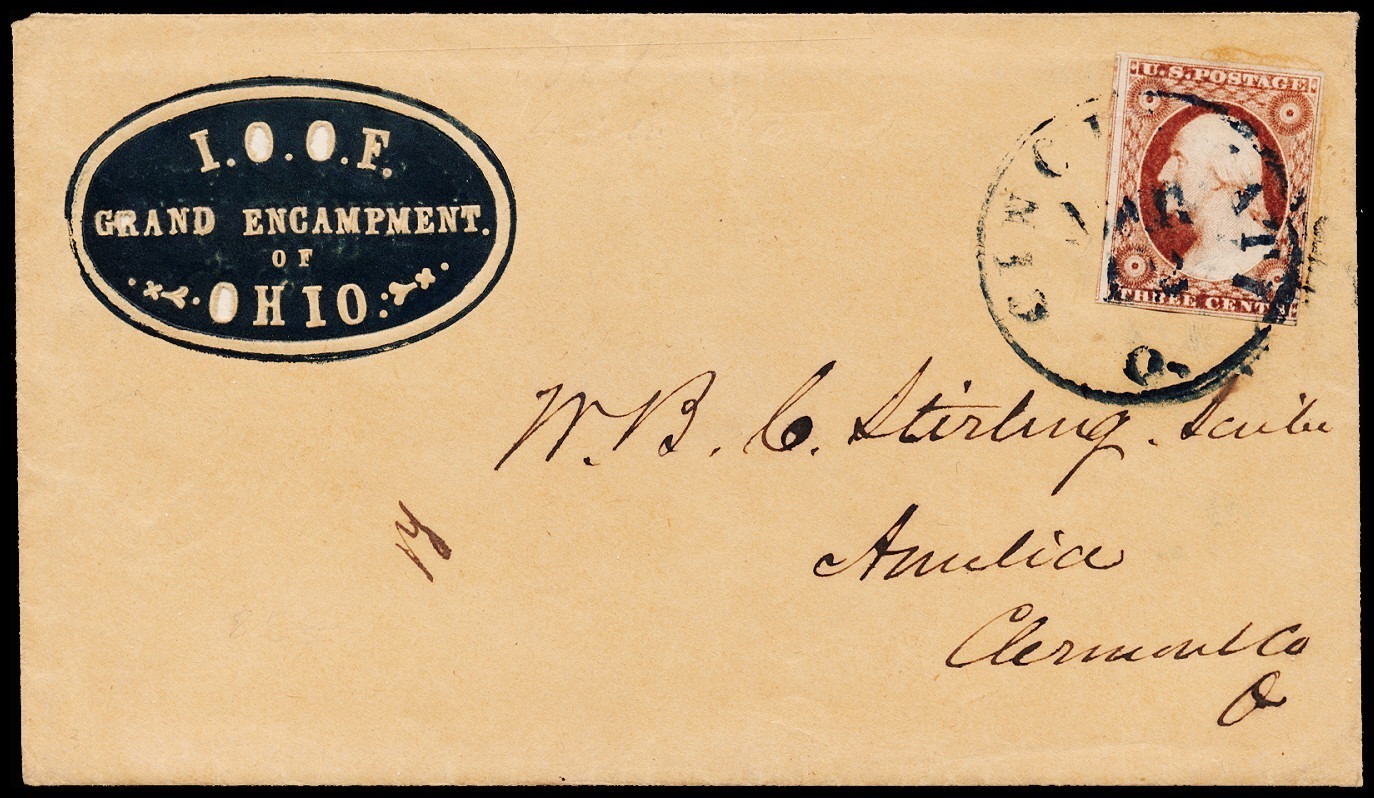 I.O.O.F.
GRAND ENCAMPMENT.
OF
OHIO
U.S. POSTAGE
THREE CENTS
CINCI
O.
W. B. C. Stirling. Scribe
Amelia
Clermont Co
O